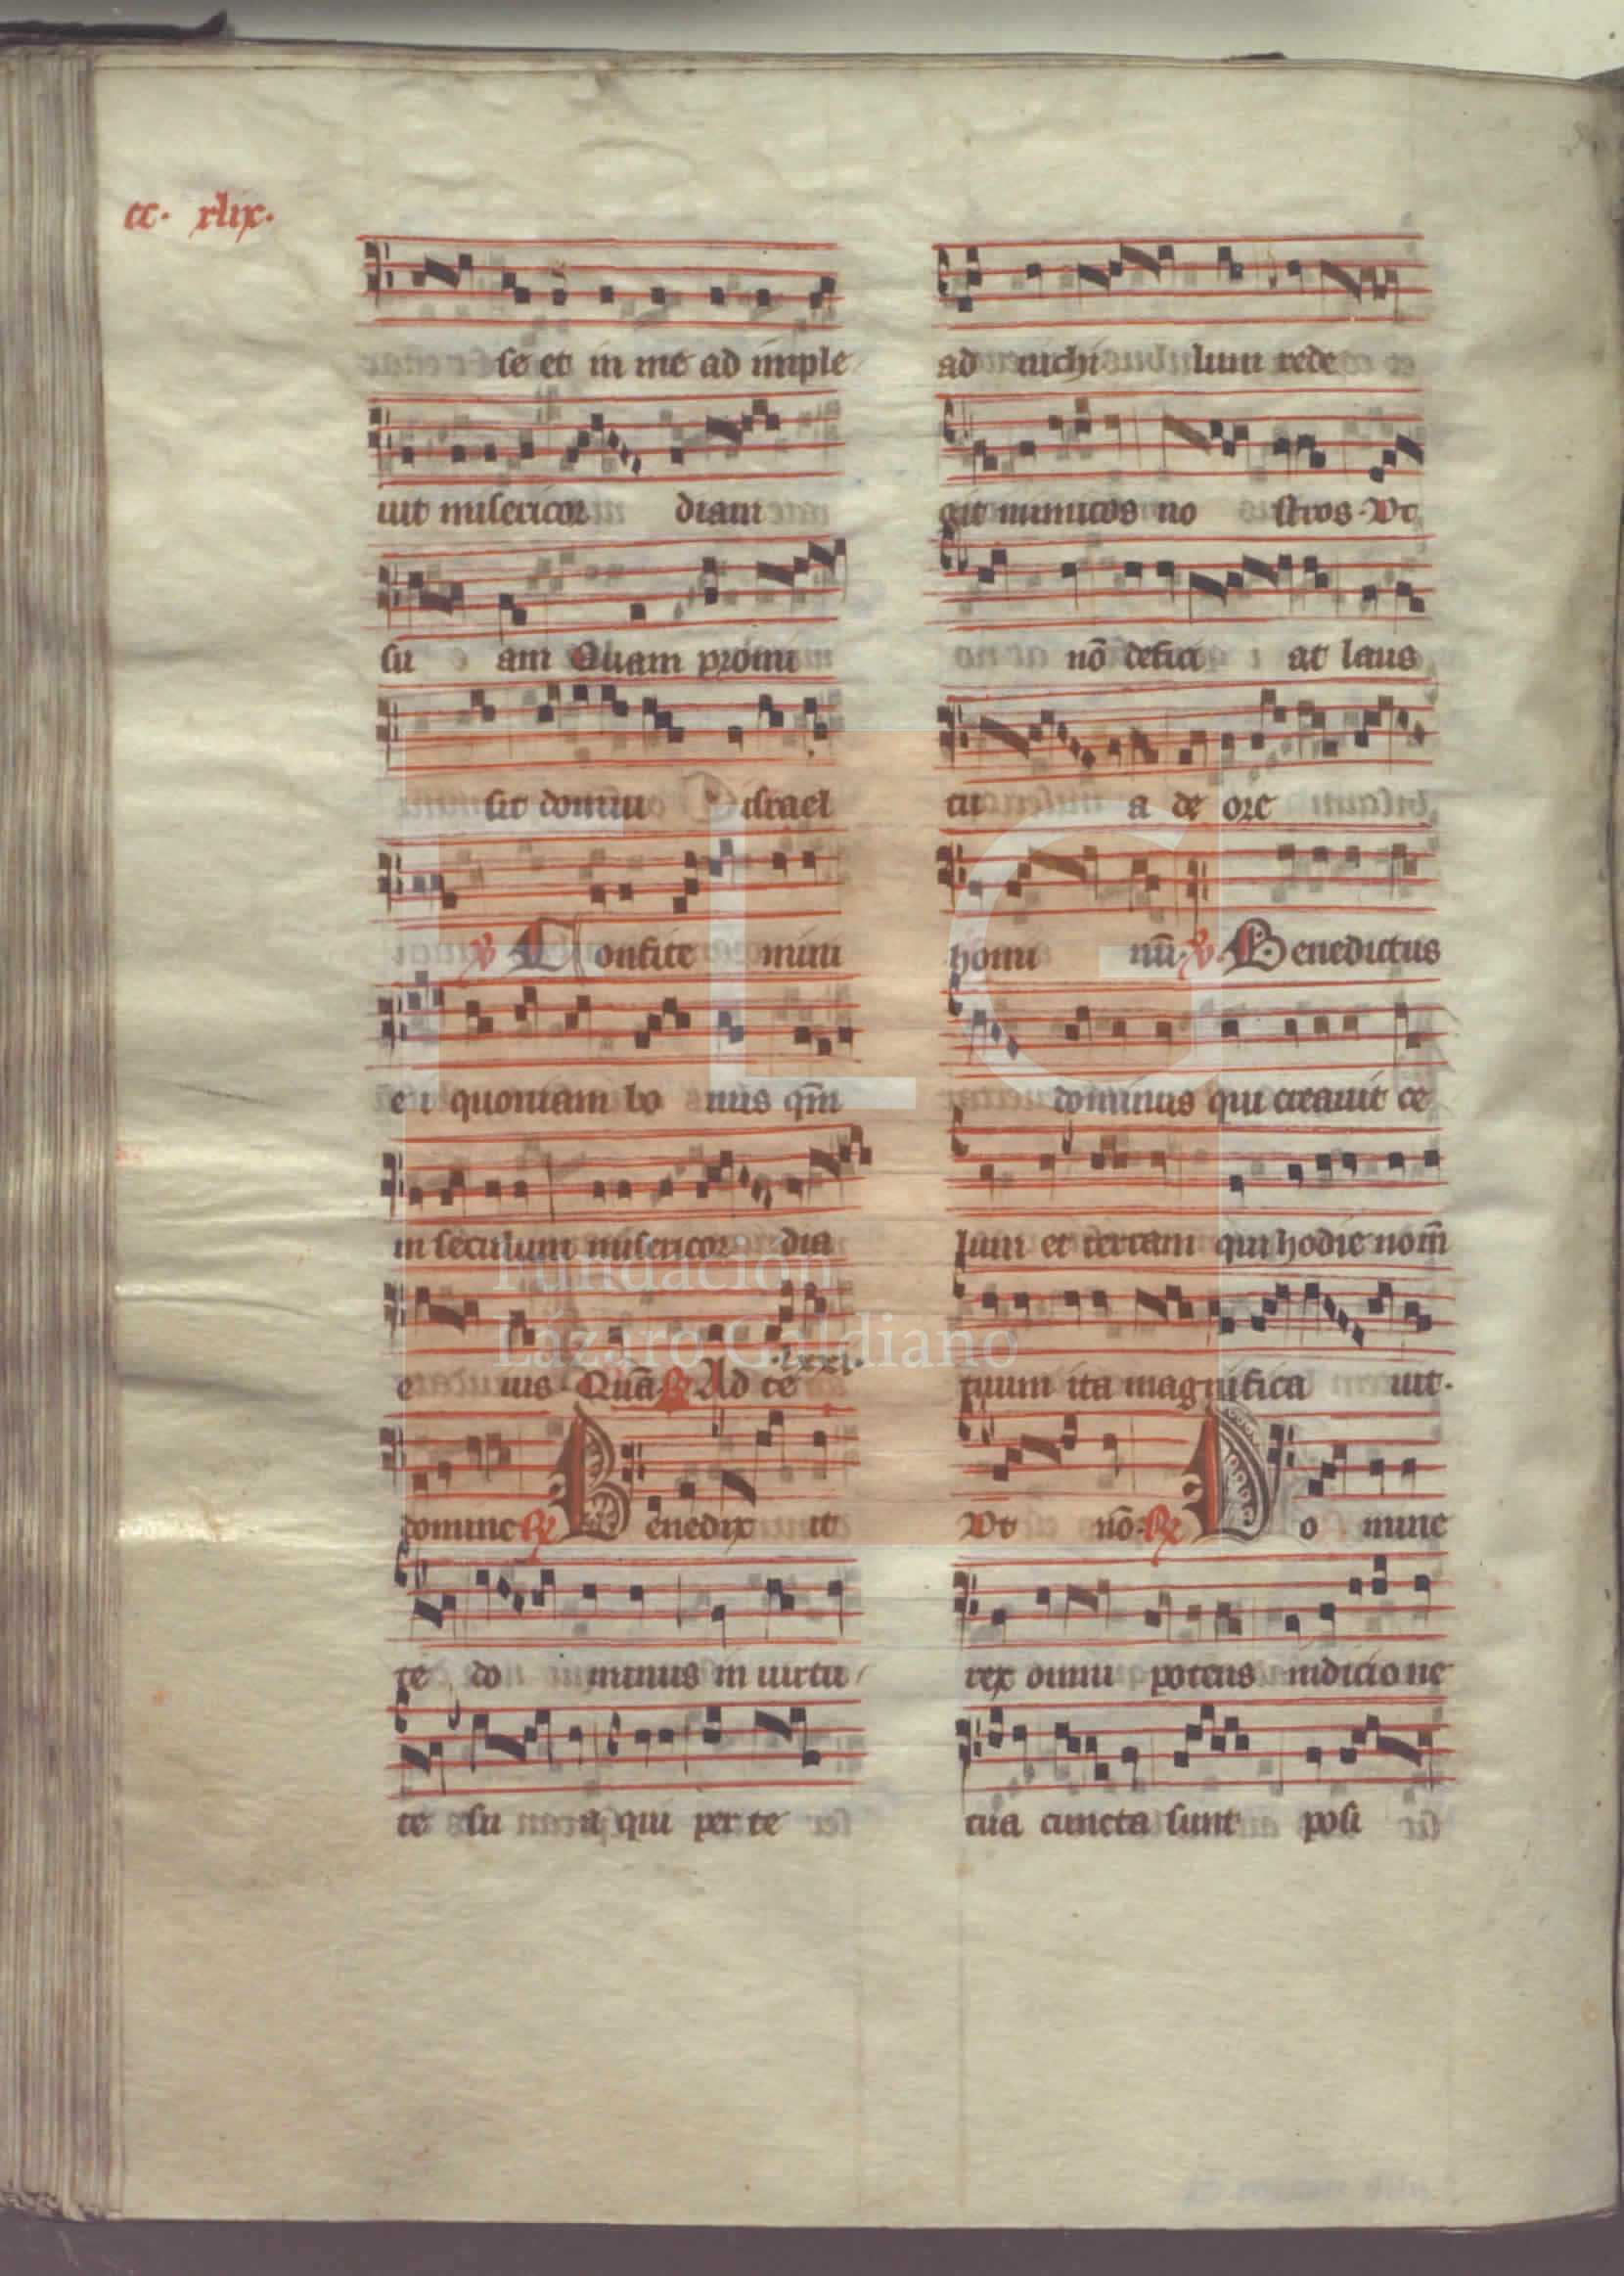 cc. xlix.
se et in me ad imple
uit misericor diam
su am Quam promi
sit domui israel
℣ Confite mini
ei quoniam bo nus qm̄
in seculum misericor dia
e ius. Quā ℟ Ad te .lxxi.
domine ℟ Benedix it
te do minus in uirtu
te su a qui per te
ad nichi lum rede
git inimicos no stros. Ut
nō defici at laus
tu a de ore
homi nū. ℣. Benedictus
dominus qui creauit ce
lum et terram qui hodie nom̄
tuum ita magnifica uit.
Ut nō. ℟ Do mine
rex omni potens in dicio ne
tua cuncta sunt posi
Fundación
Lázaro Galdiano
FLG